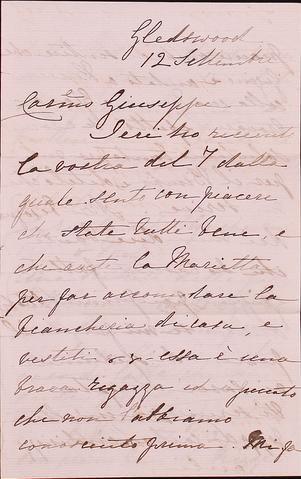 Gledswood
12 Settembre
Carmo Giuseppe
Ieri ho ricevuto
la vostra del 7 dalla
quale sento con piacere
che state tutti bene, e
che avete la Marietta
per far accomodare la
biancheria di casa, e
vestiti &c. essa è una
brava ragazza ed è peccato
che non l'abbiamo
conosciuto prima. Mi fa